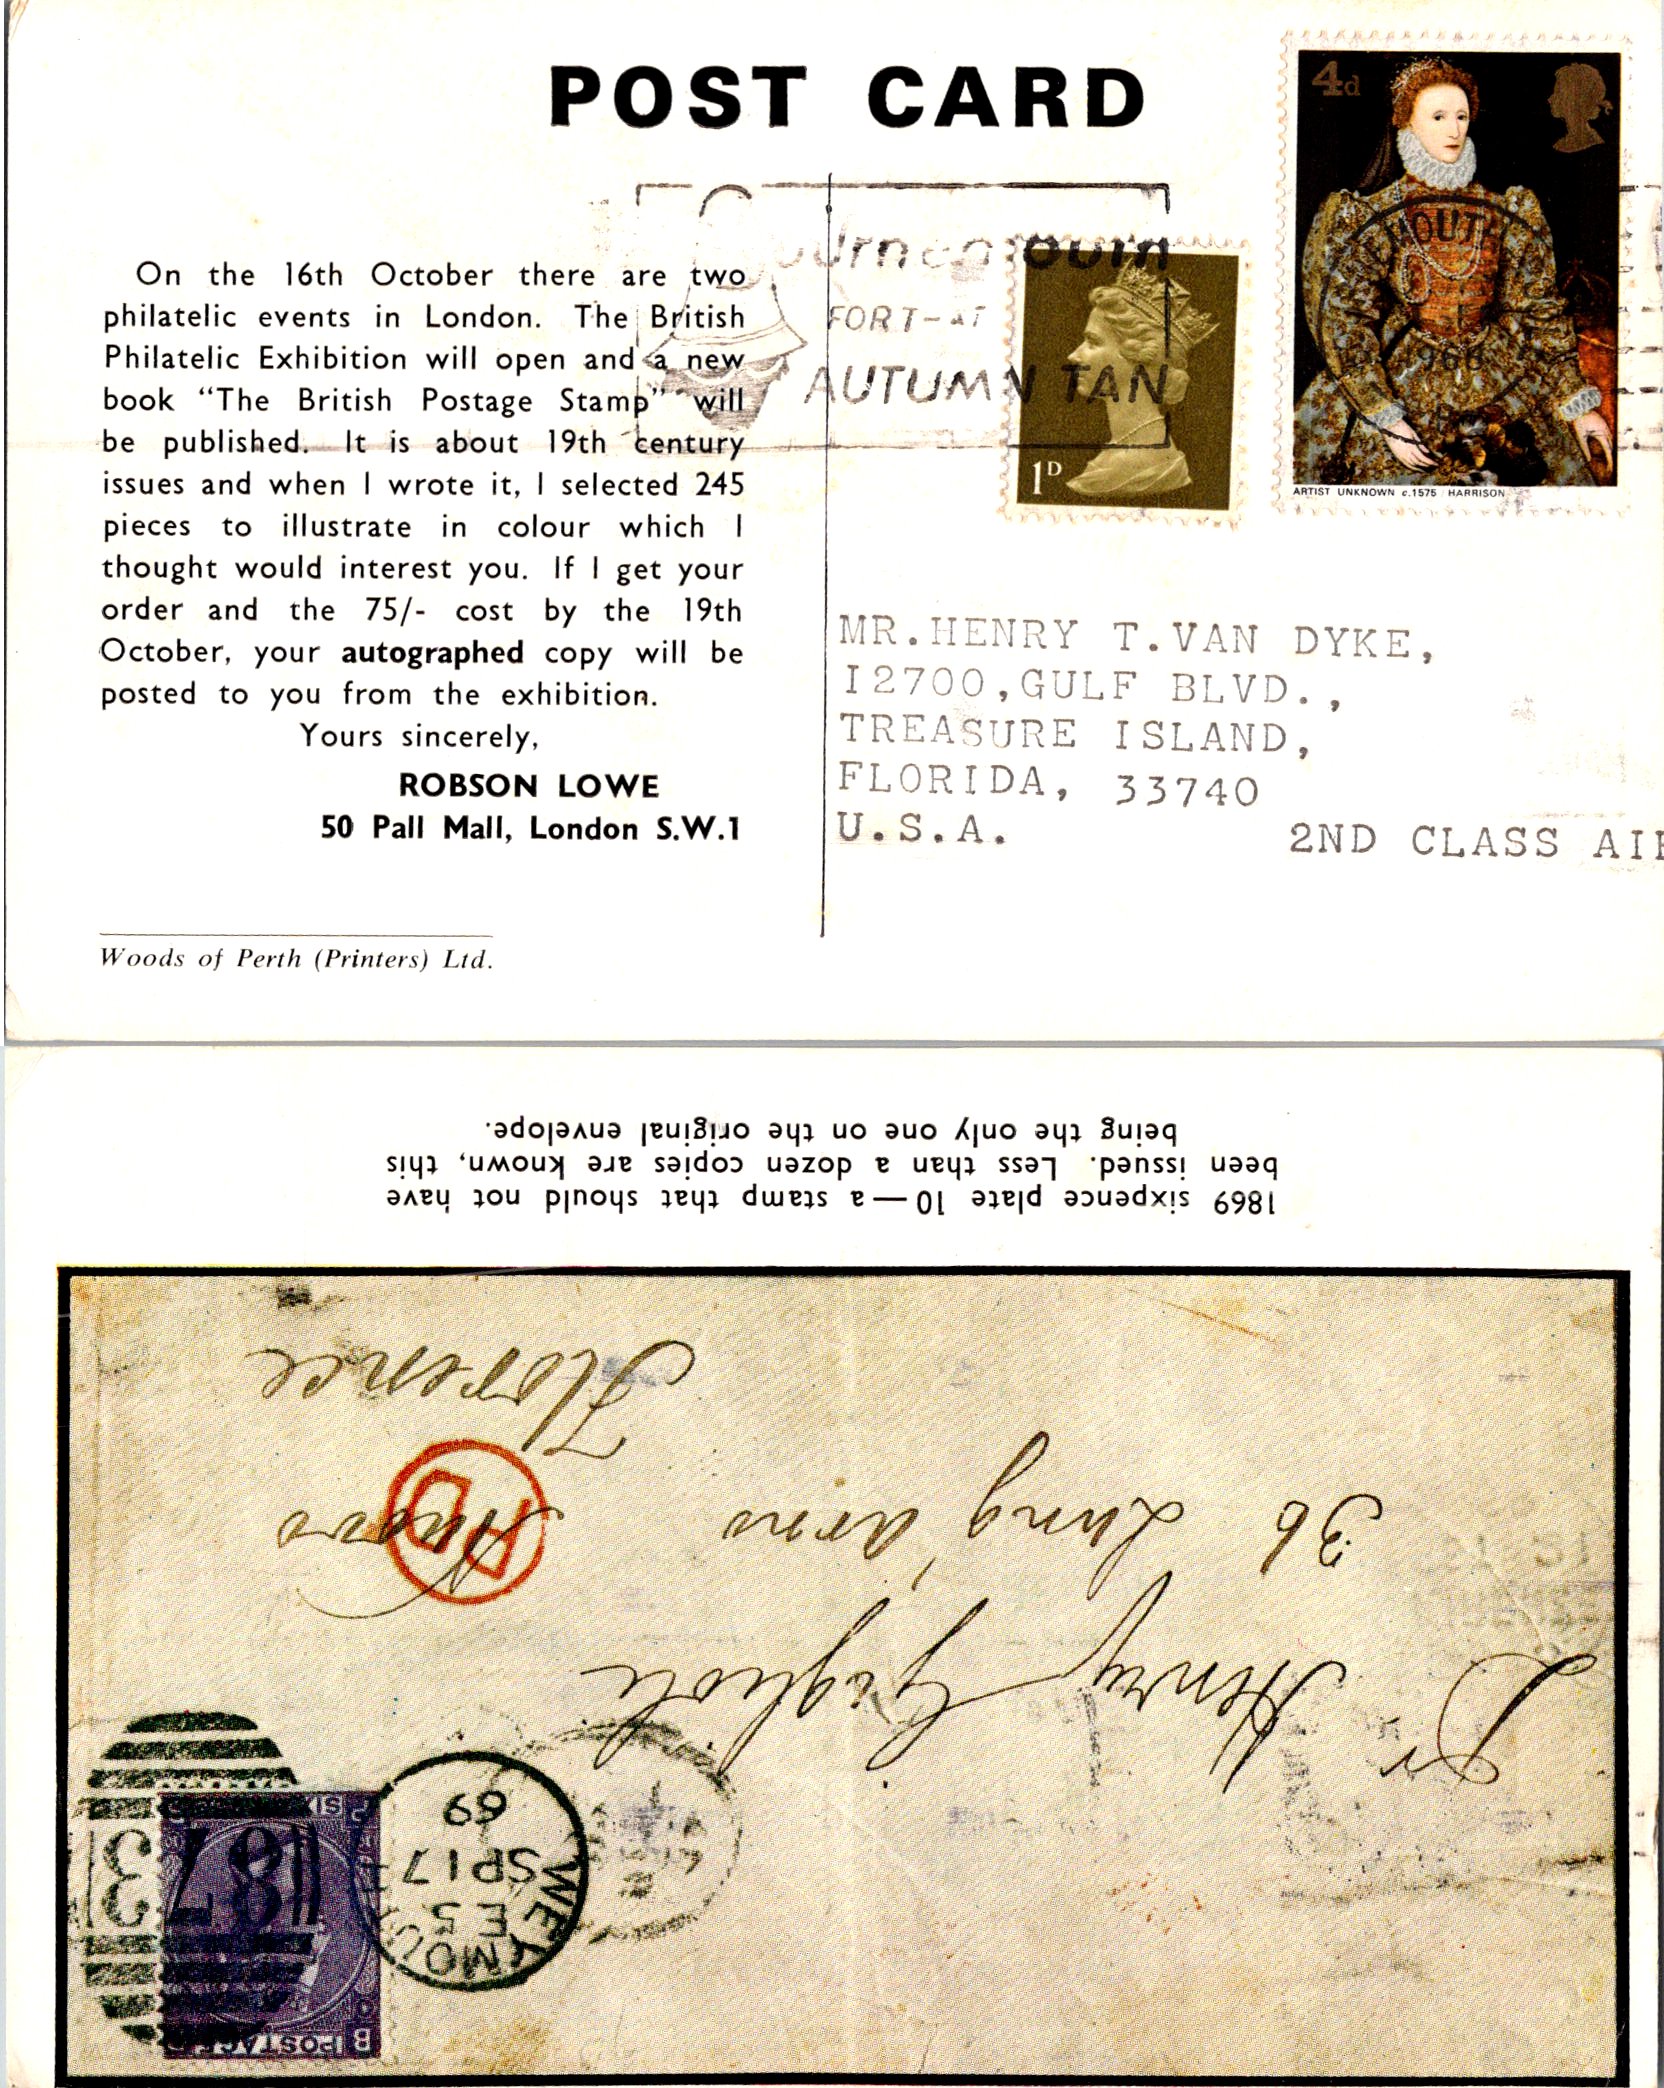 POST CARD
4d
On the 16th October there are two
philatelic events in London. The British
Philatelic Exhibition will open and a new
book “The British Postage Stamp” will
be published. It is about 19th century
issues and when I wrote it, I selected 245
pieces to illustrate in colour which I
thought would interest you. If I get your
order and the 75/- cost by the 19th
October, your autographed copy will be
posted to you from the exhibition.
Yours sincerely,
ROBSON LOWE
50 Pall Mall, London S.W.1
Woods of Perth (Printers) Ltd.
FOR T-AT
AUTUMN TAN
1D
ARTIST UNKNOWN c.1575 HARRISON
MR.HENRY T.VAN DYKE,
I2700,GULF BLVD.,
TREASURE ISLAND,
FLORIDA, 33740
U.S.A.
2ND CLASS AI
1869 sixpence plate 10—a stamp that should not have
been issued. Less than a dozen copies are known, this
being the only one on the original envelope.
B POSTAGE
873
WEYMOU
E 5
SP 17
69
Dr Henry
36 Lung'arno
PD
Florence